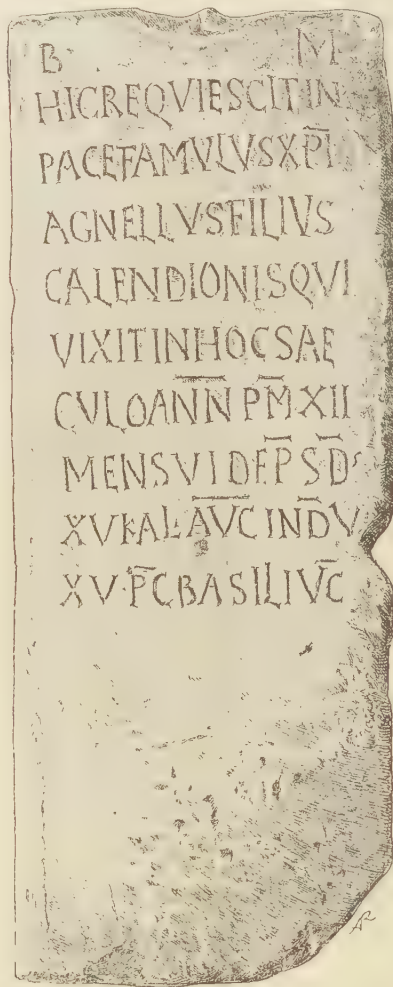 B M
HIC REQVIESCIT IN
PACE FAMVLVS XP̅I
AGNELLVS FILIVS
CALENDIONIS QVI
VIXIT IN HOC SAE
CVLO AN̅N̅ PM̅ XII
MENS VI DEP̅ S D̅
XV KAL A̅V̅C̅ IND̅ V
XV P̅C BASILI V̅C